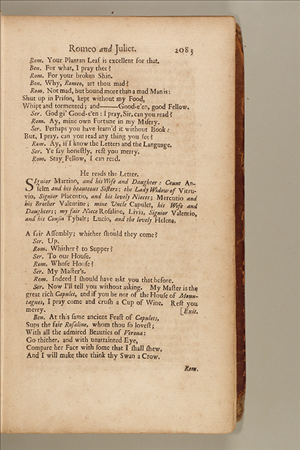 Romeo and Juliet. 2083
Rom. Your Plantan Leaf is excellent for that.
Ben. For what, I pray thee?
Rom. For your broken Shin.
Ben. Why, Romeo, art thou mad?
Rom. Not mad, but bound more than a mad Man is:
Shut up in Prison, kept without my Food,
Whipt and tormented; and——Good-e'en, good Fellow.
Ser. God gi' Good-e'en: I pray, Sir, can you read?
Rom. Ay, mine own Fortune in my Misery.
Ser. Perhaps you have learn'd it without Book:
But, I pray, can you read any thing you see?
Rom. Ay, if I know the Letters and the Language.
Ser. Ye say honestly, rest you merry.
Rom. Stay, Fellow, I can read.
He reads the Letter.
SIgnior Martino, and his Wife and Daughter: Count An-
selm and his beauteous Sisters; the Lady Widow of Vitru-
vio, Signior Placentio, and his lovely Nieces; Mercutio and
his Brother Valentine; mine Uncle Capulet, his Wife and
Daughters; my fair Niece Rosaline, Livia, Signior Valentio,
and his Cousin Tybalt; Lucio, and the lovely Helena.
A fair Assembly; whither should they come?
Ser. Up.
Rom. Whither? to Supper?
Ser. To our House.
Rom. Whose House?
Ser. My Master's.
Rom. Indeed I should have askt you that before.
Ser. Now I'll tell you without asking. My Master is the
great rich Capulet, and if you be not of the House of Moun-
tagues, I pray come and crush a Cup of Wine. Rest you
merry. [Exit.
Ben. At this same ancient Feast of Capulets,
Sups the fair Rosaline, whom thou so lovest;
With all the admired Beauties of Verona:
Go thither, and with unattainted Eye,
Compare her Face with some that I shall shew,
And I will make thee think thy Swan a Crow.
Rom.